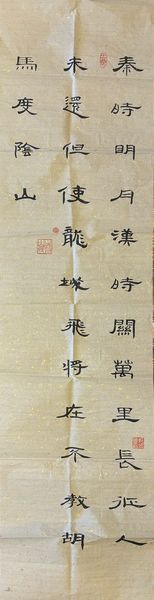 秦時明月漢時關萬里長征人
未還但使龍城飛將在不教胡
馬度陰山